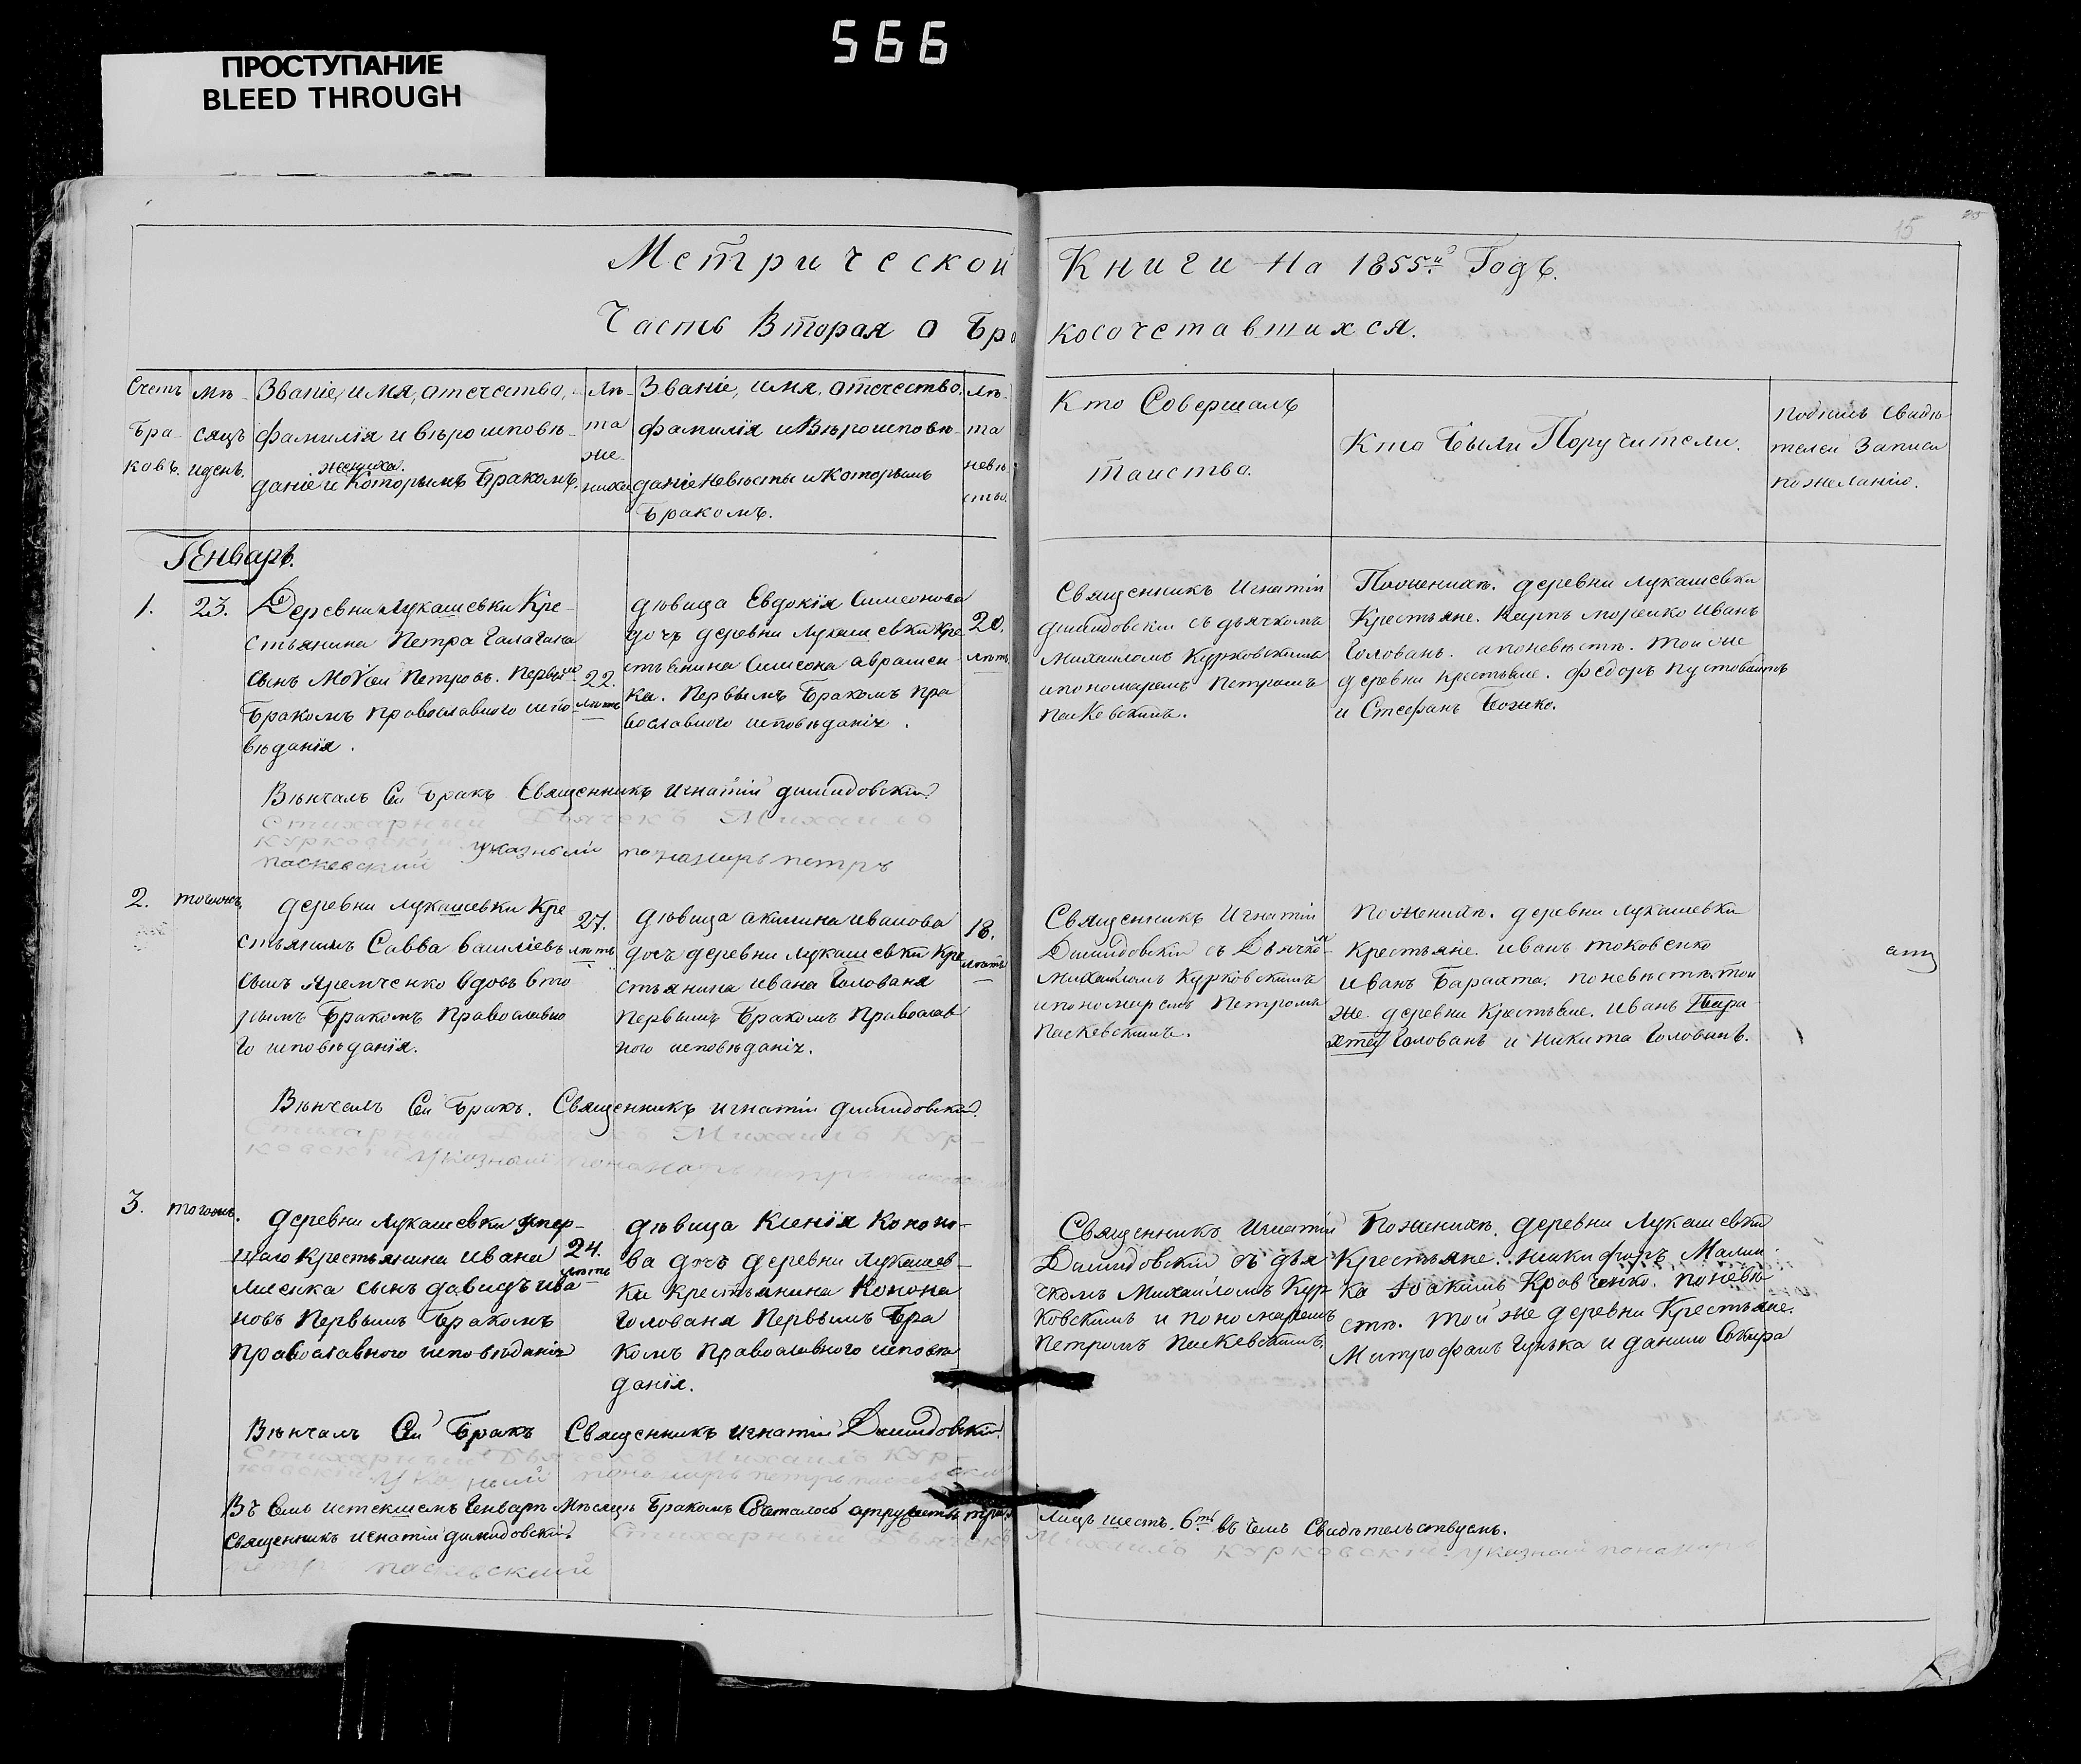 566
ПРОСТУПАНИЕ
BLEED THROUGH
15
Метрической Книги на 1855й Годъ.
Часть Вторая о Бракосочетавшихся.
Счетъ
Бра-
ковъ.
Мѣ-
сяцъ
и день.
Званіе, имя, отечество,
фамилія и вѣроисповѣ-
жениха
даніе и Которымъ Бракомъ.
Лѣ-
та
же-
ниха
Званіе, имя, отечество,
фамилія и Вѣроисповѣ-
даніе Невѣсты и Которымъ
Бракомъ.
Лѣ-
та
невѣ-
сты.
Кто Совершалъ
таинство.
Кто были Поручители.
подписъ свидѣ-
телей Записи
по желанію.
Генварь.
1.
23.
Деревни Лукашевки Кре-
стьянина Петра Галагана
сынъ Моѵсей Петровъ. Первымъ
Бракомъ православного испо-
вѣданія.
22.
лѣтъ
дѣвица Евдокія Симеонова
дочь деревни Лукашевки Кре-
стьянина Симеона Аврамен-
ка. Первымъ Бракомъ пра
вославного исповѣданія.
20.
лѣтъ
Священникъ Игнатій
Димидовскій съ дьячкомъ
Михаиломъ Курковскимъ
и пономаремъ Петромъ
Паскевскимъ.
По женихѣ. деревни Лукашевки
Крестьяне. Карпъ Иванъ
Голованъ. а по невѣстѣ. той же
деревни крестьяне. Федоръ Пустовойтъ
и Стефанъ Божко.
Вѣнчалъ Сей Бракъ Священникъ Игнатій Димидовскій
Стихарный Дьячекъ Михаилъ
Курковскій
паскевский указный понамарь петръ
2.
тогожъ
деревни Лукашевки Кре
стьянинъ Савва Василіевъ
сынъ Яремченко вдовъ вто
рымъ Бракомъ Православно
го исповѣданія.
27.
лѣтъ
дѣвица Акилина Иванова
дочь деревни Лукашевки Кре
стьянина Ивана Голована
Первымъ Бракомъ Православ
ного исповѣданія.
18.
лѣтъ
Священникъ Игнатій
Димидовскій съ Дьячкомъ
Михаиломъ Курковскимъ
и пономаремъ Петромъ
Паскевскимъ.
По женихѣ. деревни Лукашевки
Крестьяне. Иванъ Токовенко
Иванъ Барахта. по невѣстѣ. той
же деревни Крестьяне. Иванъ Бара
хта Голованъ и Никита Голованъ.
Вѣнчалъ Сей Бракъ. Священникъ Игнатій Димидовскій.
Стихарный Дьячекъ Михаилъ Кур-
ковскій Указный понамарь петръ паскевский
3.
тогожъ.
деревни Лукашевки умер-
шаго Крестьянина Ивана
сынъ Давидъ Ива-
новъ Первымъ Бракомъ
Православного исповѣданія
24.
лѣтъ
дѣвица Ксенія Кононо-
ва дочь деревни Лукашев-
ки Крестьянина Конона
Голована Первымъ Бра
комъ Православного исповѣ
данія.
Священникъ Игнатій
Димидовскій съ дья
чкомъ Михаиломъ Кур-
ковскимъ и пономаремъ
Петромъ Паскевскимъ.
По женихѣ. деревни Лукашевки
Крестьяне. Никифоръ Малин-
ка Іоакимъ Кравченко. по невѣ
стѣ. той же деревни Крестьяне.
Митрофанъ Гунька и Данило Сокира
Вѣнчалъ Сей Бракъ Священникъ Игнатій Димидовскій.
Стихарный Дьячекъ Михаилъ Кур-
ковскій Указный понамарь петръ паскевский
Въ Семъ истекшемъ Генварѣ Мѣсяцѣ Бракомъ Сочеталось Лицъ шесть. 6ть въ чемъ Свидѣтельствуемъ.
Священникъ Игнатій Димидовскій Стихарный Дьячекъ Михаилъ Курковскій. Указный понамарь
петръ паскевский